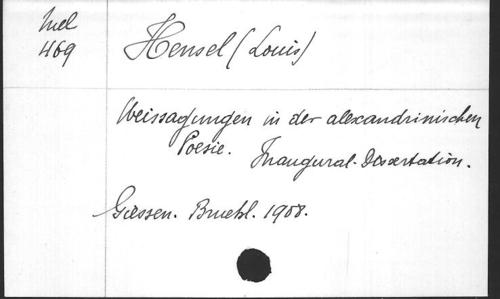 Mel
469
Hensel (Louis)
Weissagungen in der alexandrinischen
Poesie. Inaugural-Dissertation.
Giessen. Bruehl. 1908.